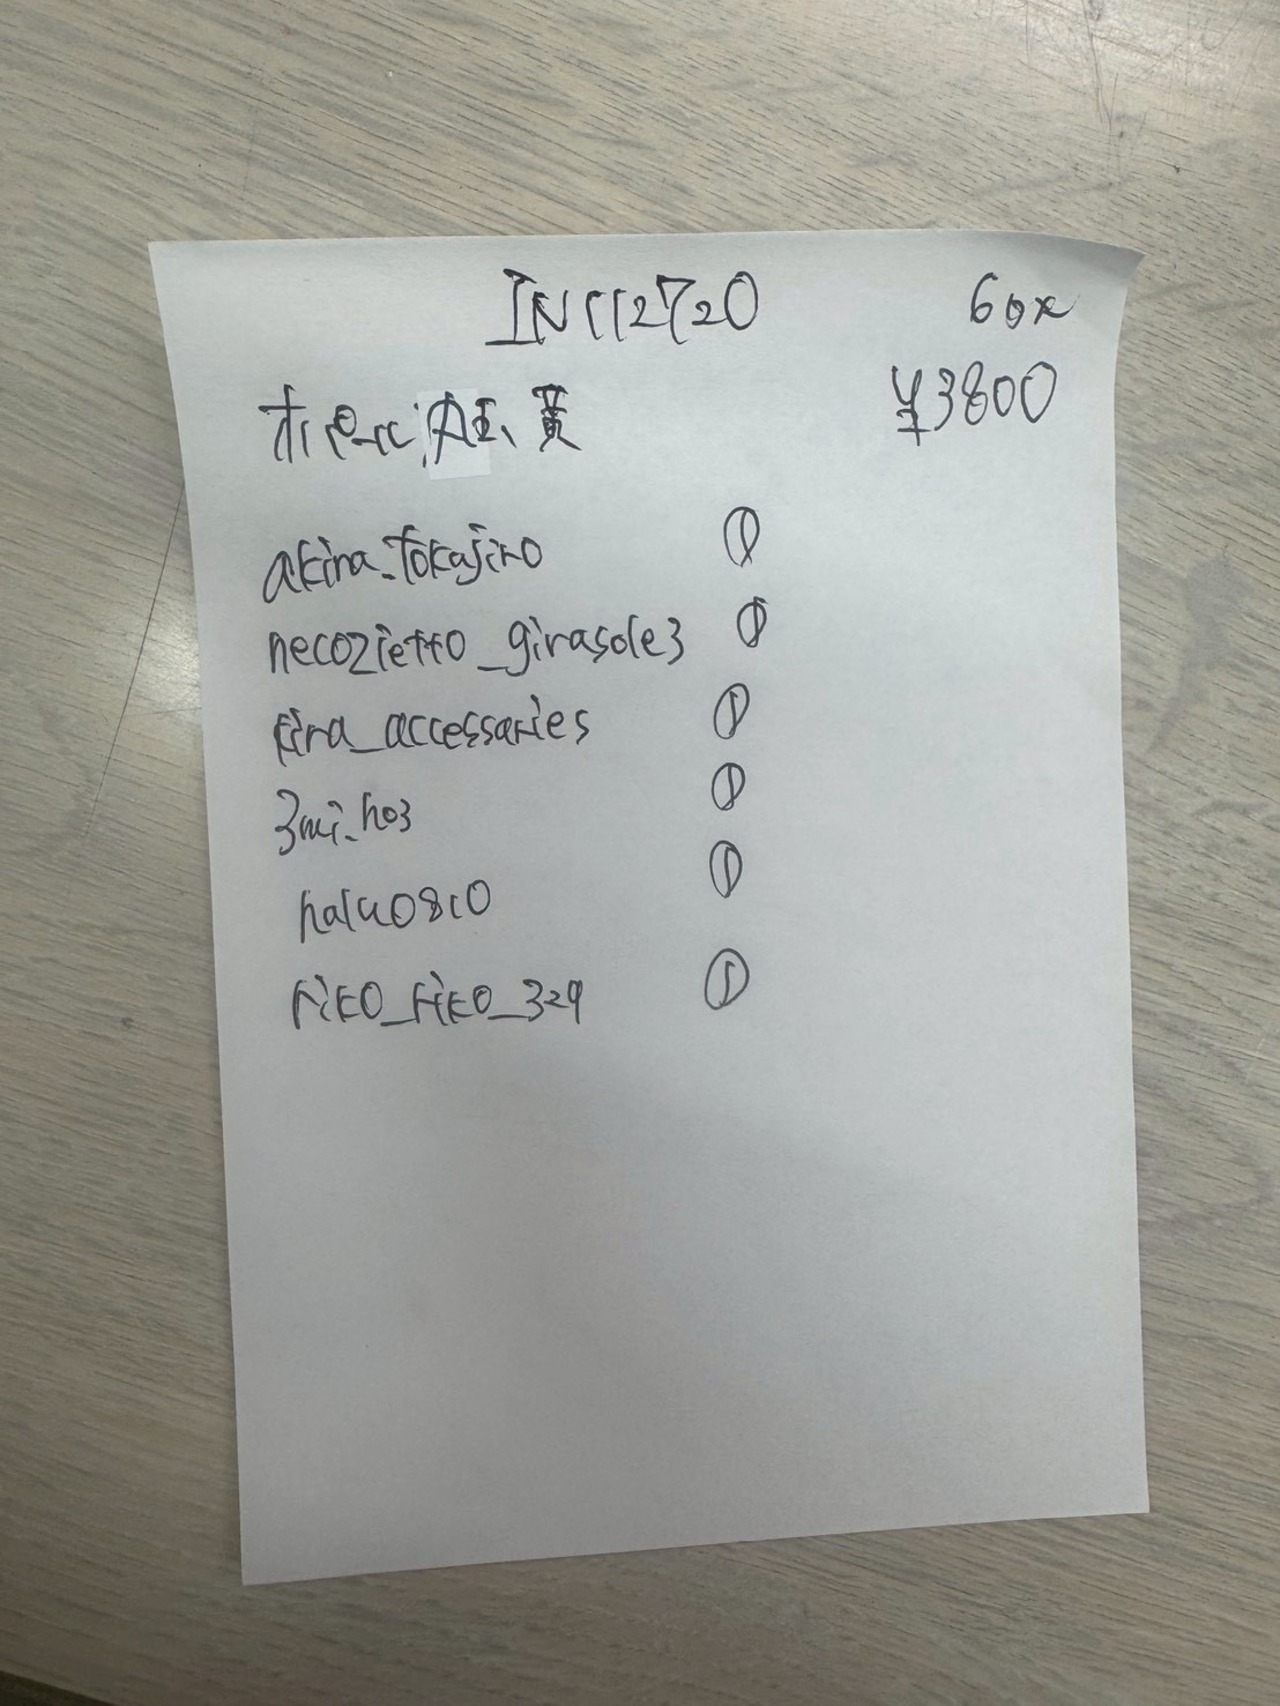 INC112720 60x
¥3800
黄
akira_tokajiro ①
necozietto_girasole3 ①
kira_accessaries ①
3mi_ho3 ①
halu0810 ①
riko_riko_329 ①